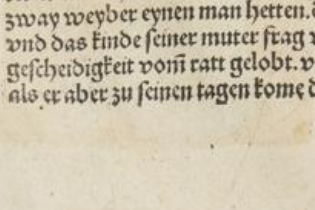 zway weyber eynen man hetten.
vnd das kinde seiner muter frag
gescheidigkeit vom̄ ratt gelobt.
als er aber zu seinen tagen kome